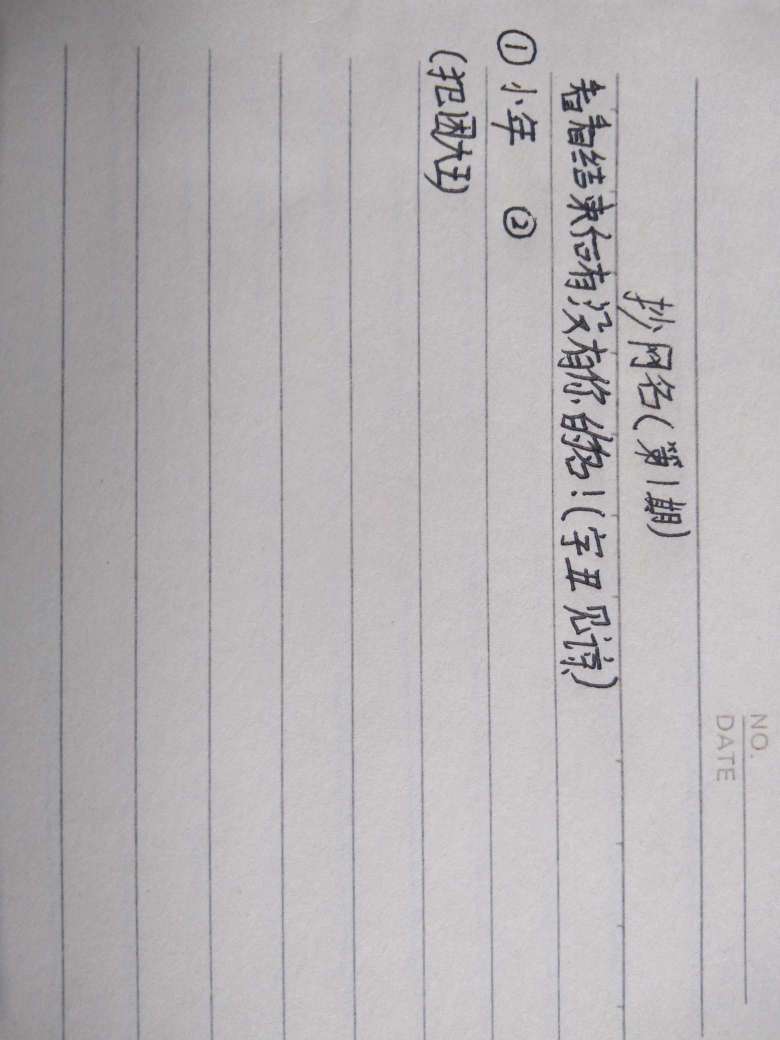 NO.
DATE
抄网名(第1期)
看看结束后有没有你的名!(字丑见谅)
① 小年 ②
(犯困大王)